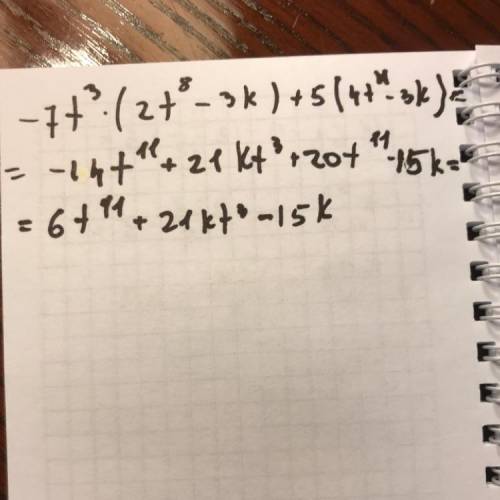 -7t³·(2t⁸-3k)+5(4t¹¹-3k)=
= -14t¹¹+21kt³+20t¹¹-15k=
= 6t¹¹+21kt³-15k